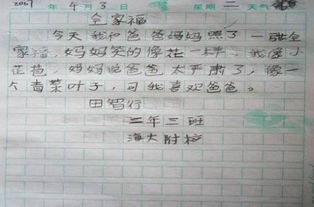 2007年4月3日 星期二 天气
全家福
今天我和爸爸妈妈照了一张全
家福，妈妈笑的像花一样，我像小
花苞，妈妈说爸爸太严肃了，像一
个青菜叶子，可我喜欢爸爸。
田智行
二年三班
海大附校